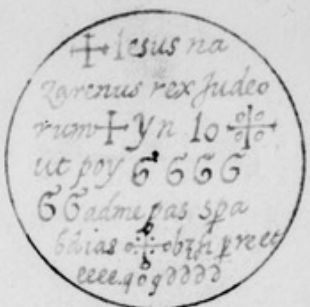 ✠ Iesus na
zarenus rex Judeo
rum ✠ yn Io ✠
ut poy G G G G
G G adme pas spa
dias obzh pre et
eeee.q o g d d d d